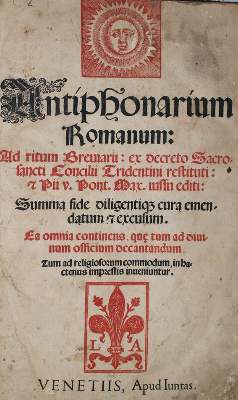 Antiphonarium
Romanum:
Ad ritum Breviarii: ex decreto Sacro-
sancti Concilii Tridentini restituti:
& Pii v. Pont. Max. iussu editi:
Summa fide diligentiaq; cura emen-
datum & excusum.
Ea omnia continens, quę tum ad diui-
num officium decantandum
Tum ad religiosorum commodum, in hac-
tenus impressis inveniuntur.
L A
VENETIIS, Apud Iuntas.